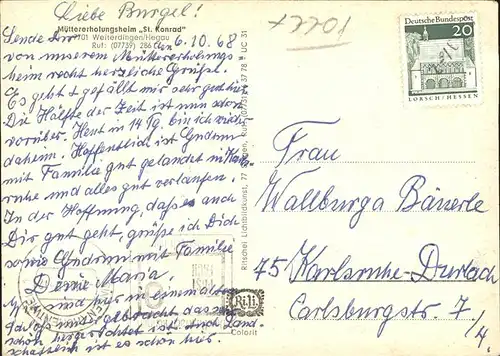 Liebe Burgel!
Müttererholungsheim „St. Konrad"
7701 Weiterdingen/Hegau
Ruf: (07739) 286
den 6.10.68
Sende Dir
von unserem Müttererholungs
heim recht herzliche Grüße.
Es geht & gefällt mir sehr gut hier
Die Hälfte der Zeit ist nun schon
vorüber. Heut in 14 Tg. bin ich wieder
daheim. Hoffentlich ist Gudrun
mit Familie gut gelandet in Karls-
ruhe und alles gut verlaufen.
In der Hoffnung, daß es auch
Dir gut geht, grüße ich Dich
sowie Gudrun mit Familie
Deine Maria.
sind hier in einem alten
schön hergerichtet ist. Auch Land-
schaftlich ist es schön hier.
Ritschel Lichtbildkunst, 77
UC 31
Colorit
10224
Deutsche Bundespost
20
LORSCH/HESSEN
Frau
Wallburga Bäuerle
75 Karlsruhe-Durlach
Carlsburgstr. 7